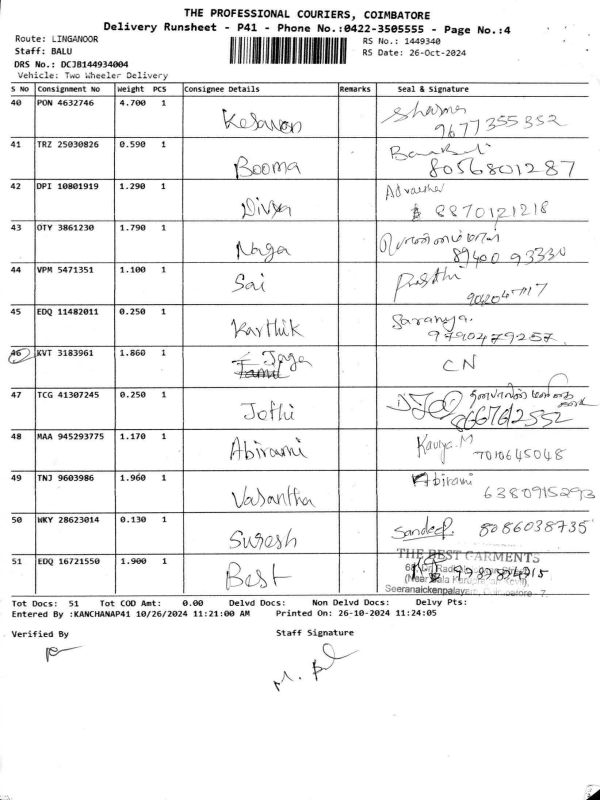 THE PROFESSIONAL COURIERS, COIMBATORE
Delivery Runsheet - P41 - Phone No.:0422-3505555 - Page No.:4
Route: LINGANOOR RS No.: 1449340
Staff: BALU RS Date: 26-Oct-2024
DRS No.: DCJB144934004
Vehicle: Two Wheeler Delivery
S No Consignment No Weight PCS Consignee Details Remarks Seal & Signature
40 PON 4632746 4.700 1 Kesavan Sharma
9677355352
41 TRZ 25030826 0.590 1 Booma
8056801287
42 DPI 10801919 1.290 1 Divya
8870121218
43 OTY 3861230 1.790 1 Naga
89400 93330
44 VPM 5471351 1.100 1 Sai
45 EDQ 11482011 0.250 1 Karthik Saranya.
9790479257
46 KVT 3183961 1.860 1 Jaga CN
Tamil
47 TCG 41307245 0.250 1 Jothi
8667612552
48 MAA 945293775 1.170 1 Abirami Kavya.M
7010645048
49 TNJ 9603986 1.960 1 Vasantha Abirami
6380915293
50 WKY 28623014 0.130 1 Suresh Sandeep. 8086038735
51 EDQ 16721550 1.900 1 Best THE BEST GARMENTS
Seeranaickenpalayam, Coimbatore - 7.
Tot Docs: 51 Tot COD Amt: 0.00 Delvd Docs: Non Delvd Docs: Delvy Pts:
Entered By :KANCHANAP41 10/26/2024 11:21:00 AM Printed On: 26-10-2024 11:24:05
Verified By Staff Signature